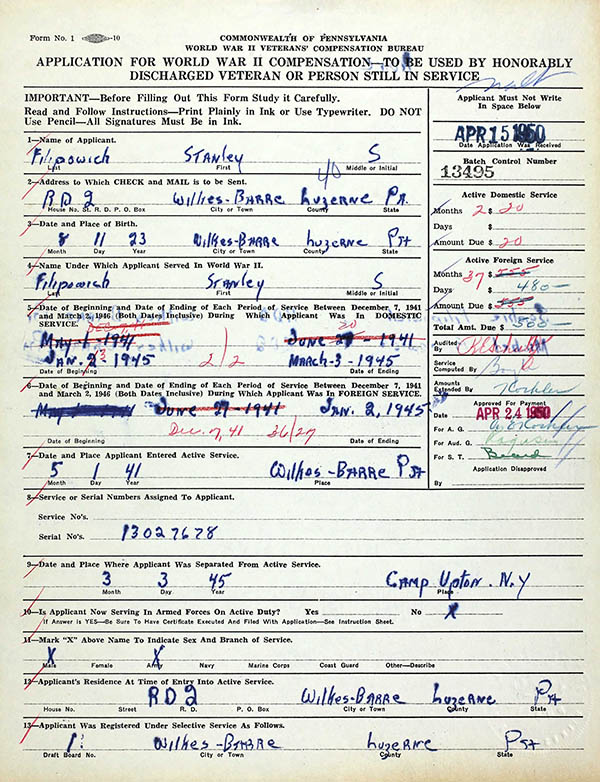 Form No. 1 -10
COMMONWEALTH OF PENNSYLVANIA
WORLD WAR II VETERANS' COMPENSATION BUREAU
APPLICATION FOR WORLD WAR II COMPENSATION—TO BE USED BY HONORABLY
DISCHARGED VETERAN OR PERSON STILL IN SERVICE
IMPORTANT—Before Filling Out This Form Study it Carefully.
Read and Follow Instructions—Print Plainly in Ink or Use Typewriter. DO NOT
Use Pencil—All Signatures Must Be in Ink.
Applicant Must Not Write
In Space Below
APR 15 1950
Date Application Was Received
Batch Control Number
13495
1—Name of Applicant.
Filipowich Stanley S
Last First Middle or Initial
40
2—Address to Which CHECK and MAIL is to be Sent.
RD 2 Wilkes-Barre Luzerne Pa.
House No. St. R. D. P. O. Box City or Town County State
Active Domestic Service
Months 2 $ 20
Days $
Amount Due $ 20
3—Date and Place of Birth.
8 11 23 Wilkes-Barre Luzerne Pa
Month Day Year City or Town County State
Active Foreign Service
Months 37 $ 555
Days $ 480
Amount Due $ 555
Total Amt. Due $ 500
4—Name Under Which Applicant Served In World War II.
Filipowich Stanley S
Last First Middle or Initial
5—Date of Beginning and Date of Ending of Each Period of Service Between December 7, 1941
and March 2, 1946 (Both Dates Inclusive) During Which Applicant Was In DOMESTIC
SERVICE.
May 1-1941 June 29-1941
20
Jan. 2-1945 2/2 March-3-1945
3
Date of Beginning Date of Ending
Audited
By
Service
Computed By Boyle
Amounts
Extended By Kochler
6—Date of Beginning and Date of Ending of Each Period of Service Between December 7, 1941
and March 2, 1946 (Both Dates Inclusive) During Which Applicant Was In FOREIGN SERVICE.
May 1-1941 June 29-1941 Jan. 2, 1945
Dec. 7, 41 36/27
Date of Beginning Date of Ending
Approved For Payment
Date APR 24 1950
For A. G.
For Aud. G.
For S. T. Beard
Application Disapproved
By
7—Date and Place Applicant Entered Active Service.
5 1 41 Wilkes-Barre Pa
Month Day Year Place
8—Service or Serial Numbers Assigned To Applicant.
Service No's.
Serial No's. 13027678
9—Date and Place Where Applicant Was Separated From Active Service.
3 3 45 Camp Upton. N.Y
Month Day Year Place
10—Is Applicant Now Serving In Armed Forces On Active Duty? Yes No X
If Answer is YES—Be Sure To Have Certificate Executed And Filed With Application—See Instruction Sheet.
11—Mark "X" Above Name To Indicate Sex and Branch of Service.
X X
Male Female Army Navy Marine Corps Coast Guard Other—Describe
12—Applicant's Residence At Time of Entry Into Active Service.
RD 2 Wilkes-Barre Luzerne Pa
House No. Street R. D. P. O. Box City or Town County State
13—Applicant Was Registered Under Selective Service As Follows.
1 Wilkes-Barre Luzerne Pa
Draft Board No. City or Town County State